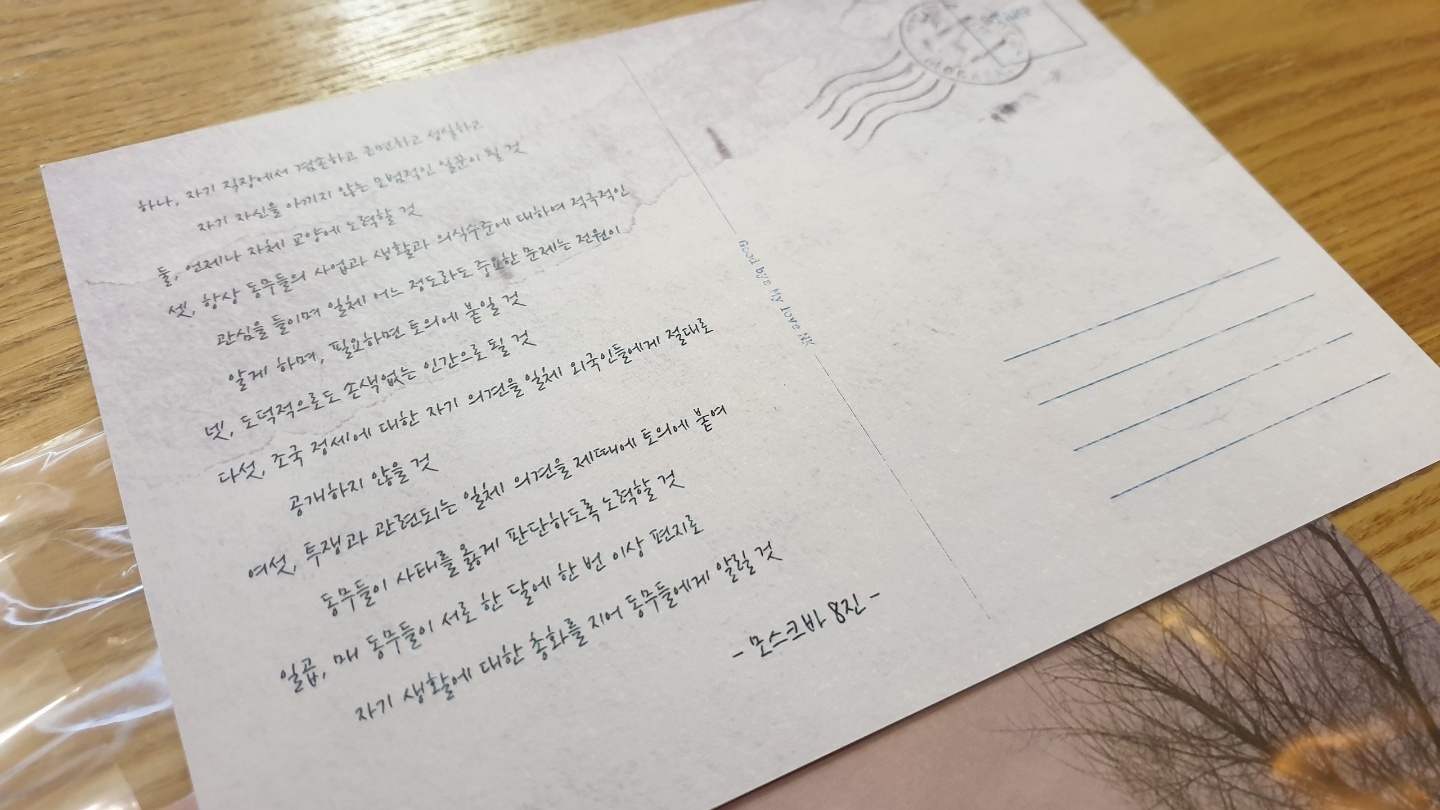 하나, 자기 직장에서 겸손하고 근면하고 성실하고
자기 자신을 아끼지 않는 모범적인 일꾼이 될 것
둘, 언제나 자체 교양에 노력할 것
셋, 항상 동무들의 사업과 생활과 의식수준에 대하여 적극적인
관심을 돌이며 일체 어느 정도라도 중요한 문제는 전원이
알게 하며, 필요하면 토의에 붙일 것
넷, 도덕적으로도 손색없는 인간으로 될 것
다섯, 조국 정세에 대한 자기 의견을 일체 외국인들에게 절대로
공개하지 않을 것
여섯, 투쟁과 관련되는 일체 의견을 제때에 토의에 붙여
동무들이 사태를 옳게 판단하도록 노력할 것
일곱, 매 동무들이 서로 한 달에 한 번 이상 편지로
자기 생활에 대한 총화를 지어 동무들에게 알릴 것
- 모스크바 8진 -
Good bye My Love NK